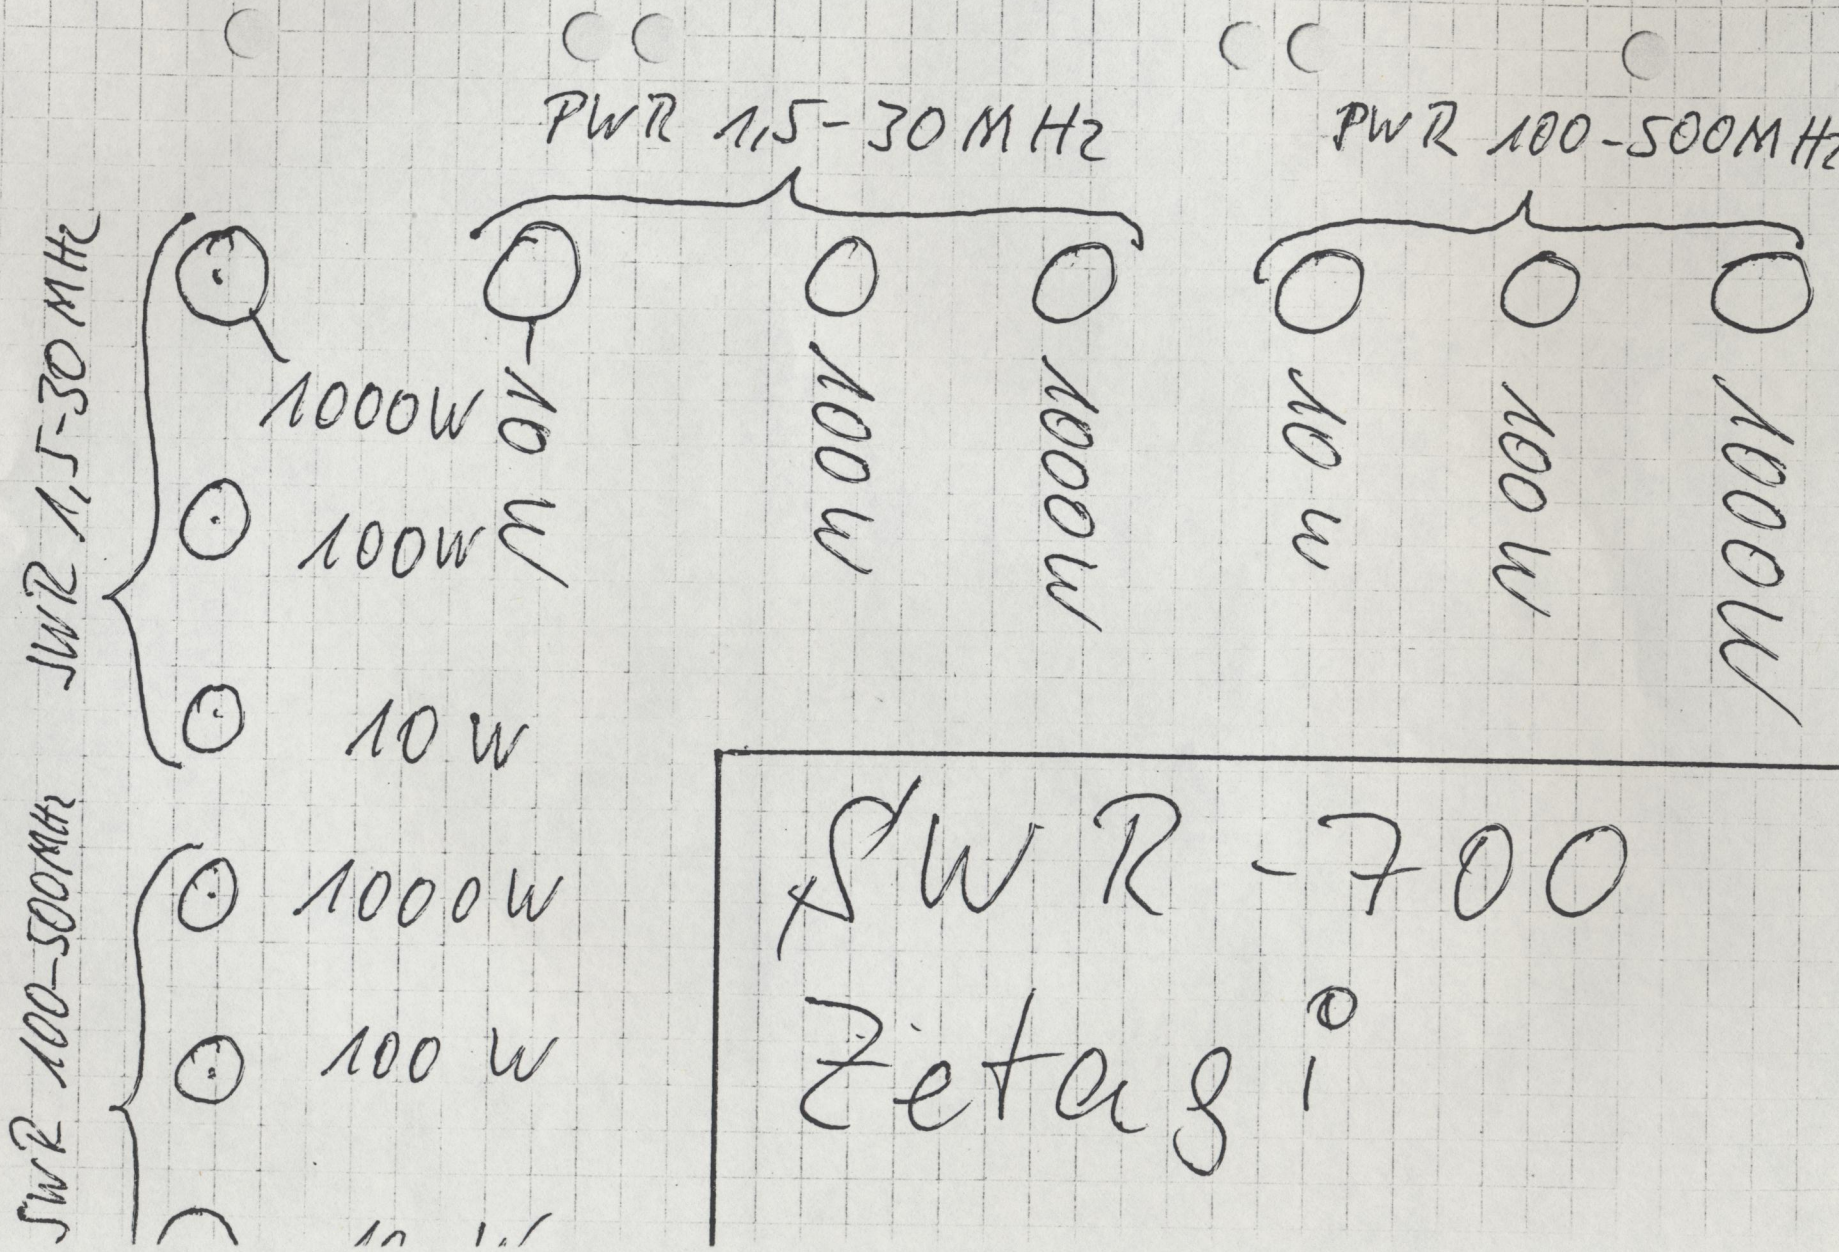 PWR 1,5-30 MHz
PWR 100-500MHz
SWR 1,5-30 MHz
1000W
100W
10 W
10 W
100 W
1000W
10 W
100 W
1000W
SWR 100-500MHz
1000 W
100 W
10 W
SWR-700
Zetagi